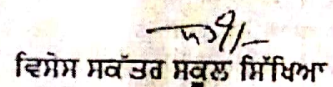 ਵਿਸੇਸ ਸਕੱਤਰ ਸਕੂਲ ਸਿੱਖਿਆ